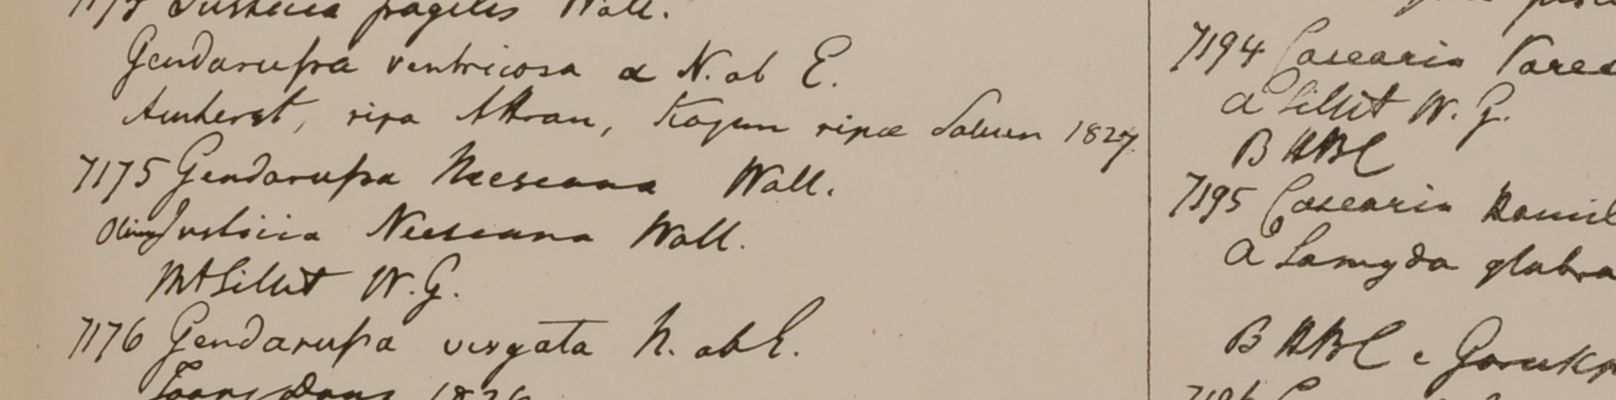 Justicia fragilis Wall.
Gendarussa ventricosa α N. ab E.
Amherst, ripa Attran, Trogun ripæ Saluen 1827
7175 Gendarussa Neeseana Wall.
Olim Justicia Neeseana Wall.
Mt Sillet W. G.
7176 Gendarussa virgata N. ab E.
1826
7194 Casearia Vares
a Sillet W. G.
B HBC
7195 Casearia
a Samyda glabra
B HBC e Gorukp